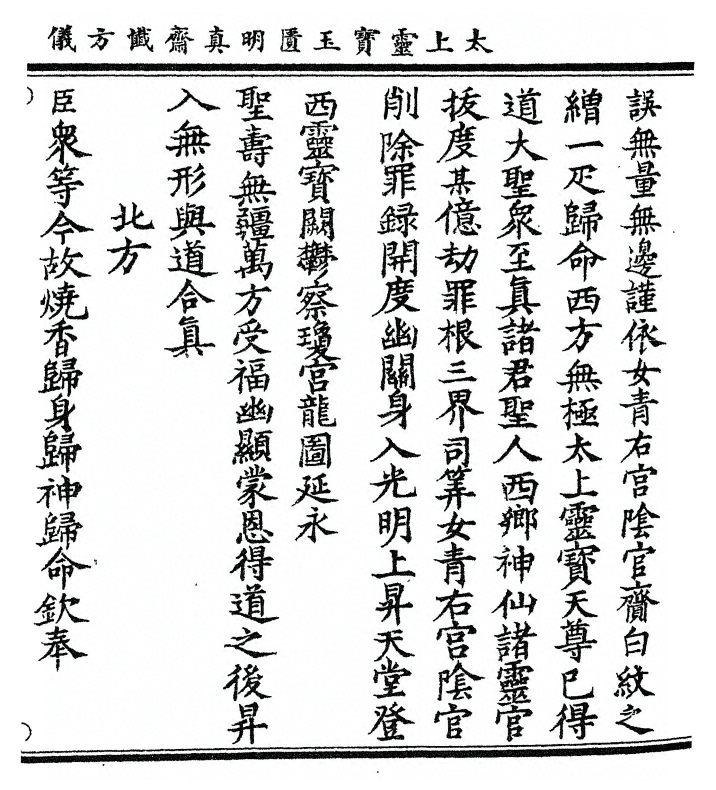 太上靈寶玉匱明真齋懺方儀
誤無量無邊謹依女青右宮陰官齎白紋之
繒一疋歸命西方無極太上靈寶天尊已得
道大聖衆至真諸君聖人西鄉神仙諸靈官
拔度某億劫罪根三界司筭女青右宮陰官
削除罪録開度幽關身入光明上昇天堂登
西靈寶闕鬱察瓊宮龍圖延永
聖壽無疆萬方受福幽顯蒙恩得道之後昇
入無形與道合真
北方
臣衆等今故燒香歸身歸神歸命欽奉